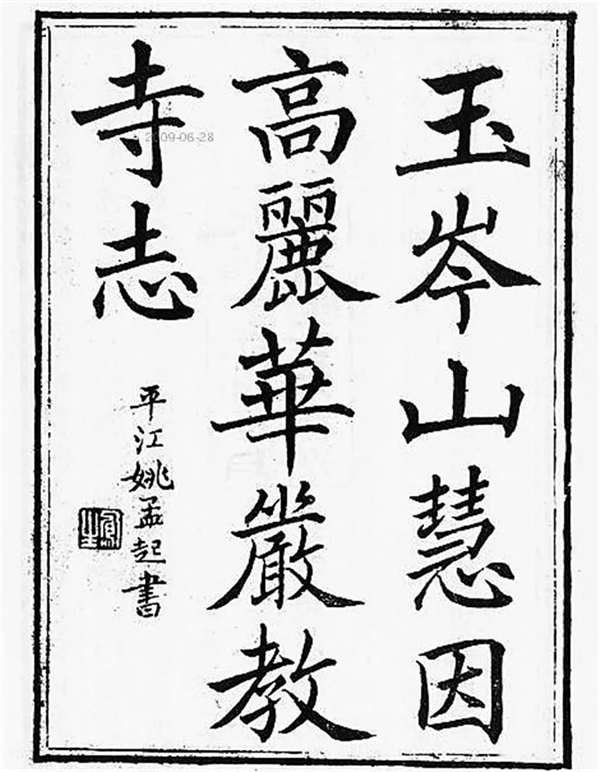 玉岑山慧因
高麗華嚴教
寺志
平江姚孟起書
2009-06-28